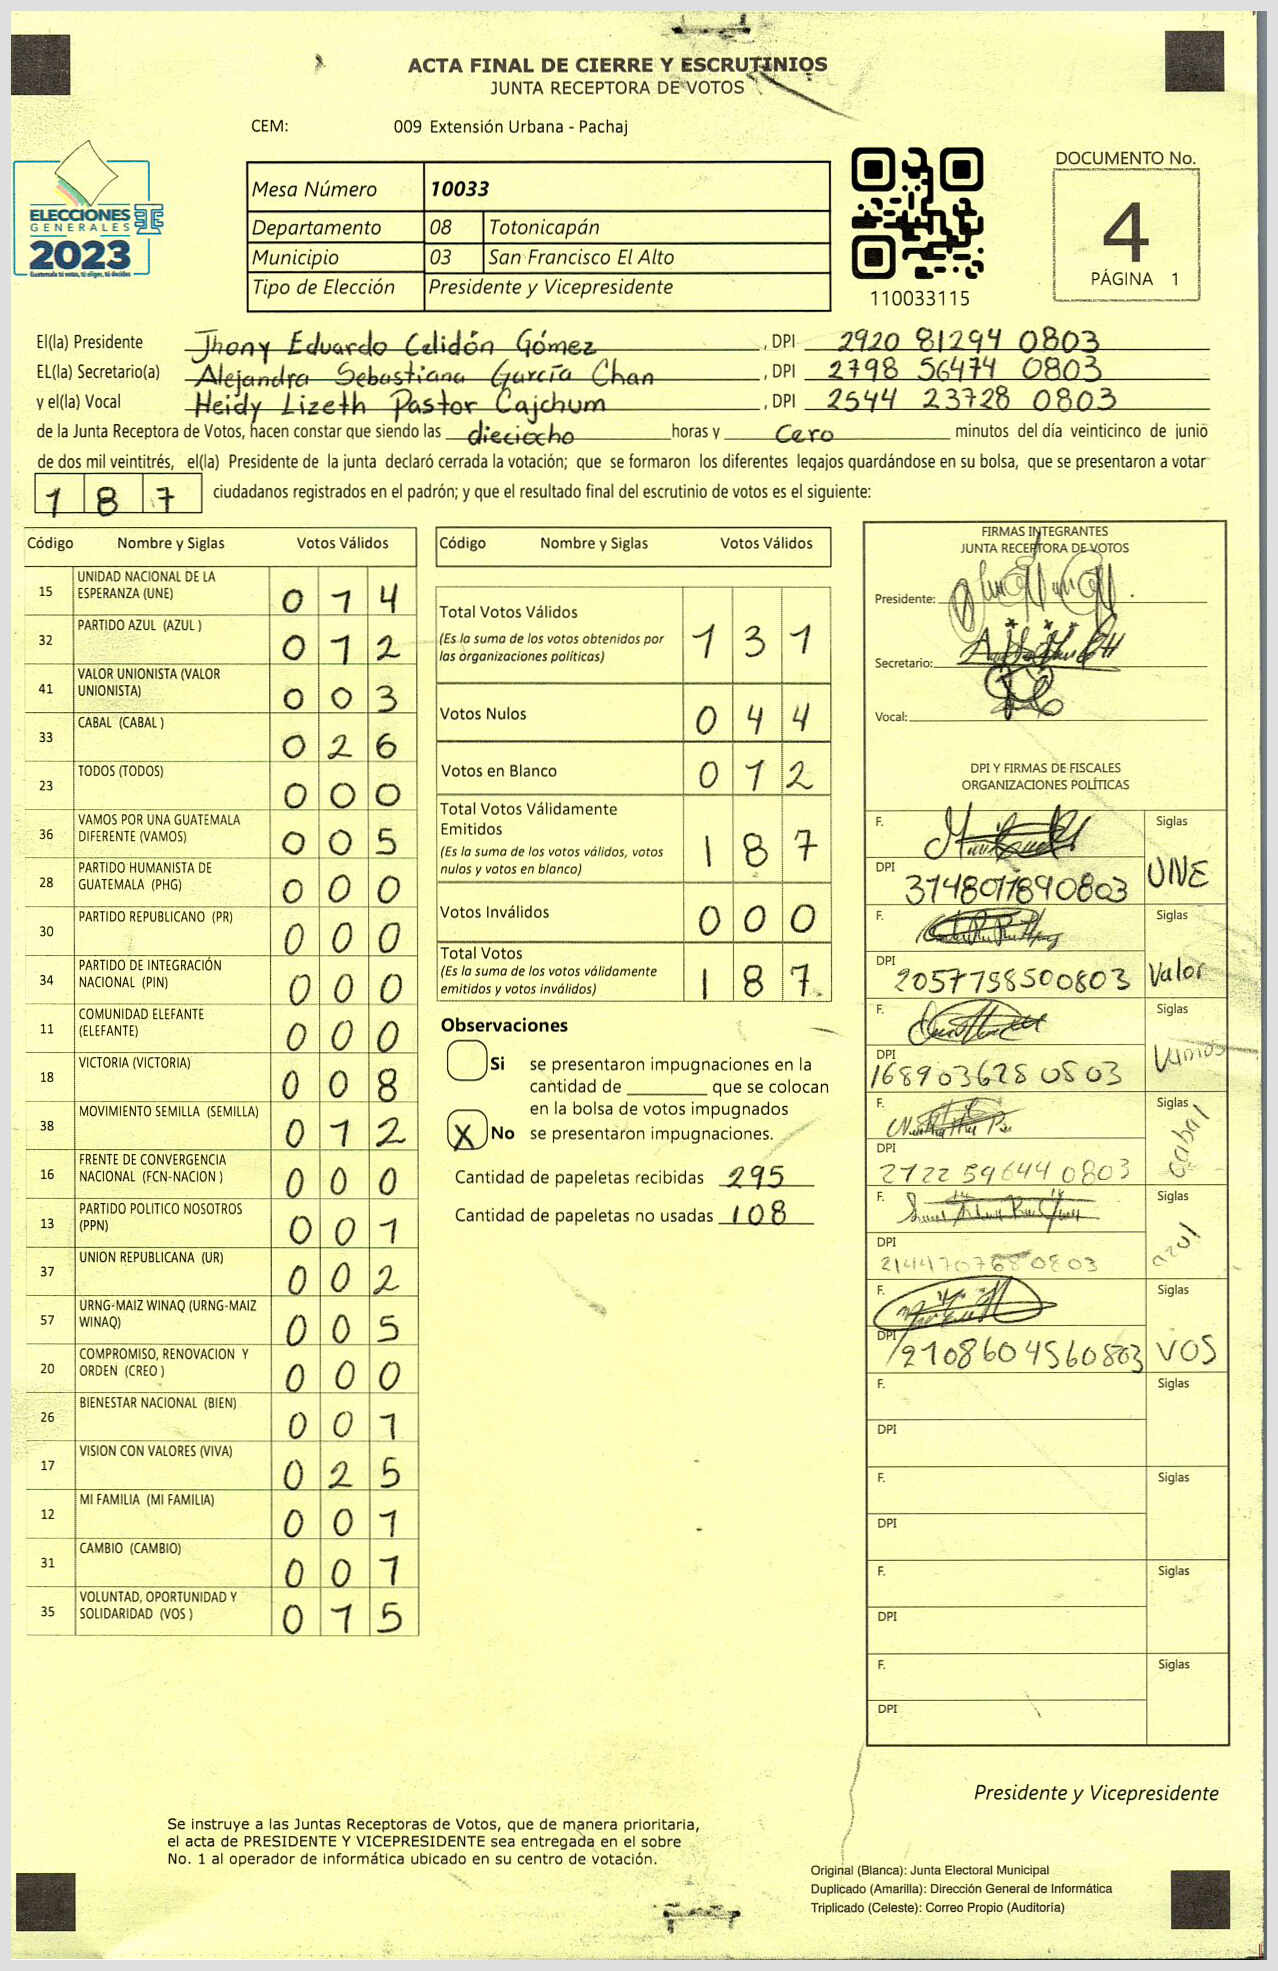 ACTA FINAL DE CIERRE Y ESCRUTINIOS
JUNTA RECEPTORA DE VOTOS
CEM: 009 Extensión Urbana - Pachaj
ELECCIONES
GENERALES
2023
Guatemala tú votas, tú eliges, tú decides
Mesa Número 10033
Departamento 08 Totonicapán
Municipio 03 San Francisco El Alto
Tipo de Elección Presidente y Vicepresidente
110033115
DOCUMENTO No.
4
PÁGINA 1
El(la) Presidente Jhony Eduardo Celidón Gómez, DPI 2920 81294 0803
EL(la) Secretario(a) Alejandra Sebastiana García Chan, DPI 2798 56474 0803
y el(la) Vocal Heidy Lizeth Pastor Cajchum, DPI 2544 23728 0803
de la Junta Receptora de Votos, hacen constar que siendo las dieciocho horas y Cero minutos del día veinticinco de junio
de dos mil veintitrés, el(la) Presidente de la junta declaró cerrada la votación; que se formaron los diferentes legajos guardándose en su bolsa, que se presentaron a votar
187 ciudadanos registrados en el padrón; y que el resultado final del escrutinio de votos es el siguiente:
Código Nombre y Siglas Votos Válidos
15 UNIDAD NACIONAL DE LA
ESPERANZA (UNE) 014
32 PARTIDO AZUL (AZUL ) 012
41 VALOR UNIONISTA (VALOR
UNIONISTA) 003
33 CABAL (CABAL ) 026
23 TODOS (TODOS) 000
36 VAMOS POR UNA GUATEMALA
DIFERENTE (VAMOS) 005
28 PARTIDO HUMANISTA DE
GUATEMALA (PHG) 000
30 PARTIDO REPUBLICANO (PR) 000
34 PARTIDO DE INTEGRACIÓN
NACIONAL (PIN) 000
11 COMUNIDAD ELEFANTE
(ELEFANTE) 000
18 VICTORIA (VICTORIA) 008
38 MOVIMIENTO SEMILLA (SEMILLA) 012
16 FRENTE DE CONVERGENCIA
NACIONAL (FCN-NACION ) 000
13 PARTIDO POLITICO NOSOTROS
(PPN) 001
37 UNION REPUBLICANA (UR) 002
57 URNG-MAIZ WINAQ (URNG-MAIZ
WINAQ) 005
20 COMPROMISO, RENOVACION Y
ORDEN (CREO ) 000
26 BIENESTAR NACIONAL (BIEN) 001
17 VISION CON VALORES (VIVA) 025
12 MI FAMILIA (MI FAMILIA) 001
31 CAMBIO (CAMBIO) 001
35 VOLUNTAD, OPORTUNIDAD Y
SOLIDARIDAD (VOS ) 015
Código Nombre y Siglas Votos Válidos
Total Votos Válidos
(Es la suma de los votos obtenidos por
las organizaciones políticas) 131
Votos Nulos 044
Votos en Blanco 012
Total Votos Válidamente
Emitidos
(Es la suma de los votos válidos, votos
nulos y votos en blanco) 187
Votos Inválidos 000
Total Votos
(Es la suma de los votos válidamente
emitidos y votos inválidos) 187
Observaciones
Si se presentaron impugnaciones en la
cantidad de ________ que se colocan
en la bolsa de votos impugnados
X No se presentaron impugnaciones.
Cantidad de papeletas recibidas 295
Cantidad de papeletas no usadas 108
FIRMAS INTEGRANTES
JUNTA RECEPTORA DE VOTOS
Presidente:
Secretario:
Vocal:
DPI Y FIRMAS DE FISCALES
ORGANIZACIONES POLÍTICAS
F. Siglas
DPI 3148011890803 UNE
F. Siglas
DPI 2057798500803 Valor
F. Siglas
DPI 1689036280803 Vamos
F. Siglas
DPI 2722596440803 Cabal
F. Siglas
DPI azul
F. Siglas
DPI 2108604560803 VOS
F. Siglas
DPI
F. Siglas
DPI
F. Siglas
DPI
F. Siglas
DPI
Presidente y Vicepresidente
Se instruye a las Juntas Receptoras de Votos, que de manera prioritaria,
el acta de PRESIDENTE Y VICEPRESIDENTE sea entregada en el sobre
No. 1 al operador de informática ubicado en su centro de votación.
Original (Blanca): Junta Electoral Municipal
Duplicado (Amarilla): Dirección General de Informática
Triplicado (Celeste): Correo Propio (Auditoría)